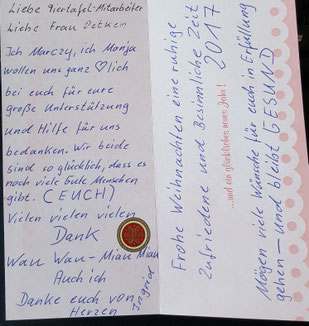 Liebe Tiertafel-Mitarbeiter
Liebe Frau Detken
Ich Marczy, ich Monja
wollen uns ganz ♡lich
bei euch für eure
große Unterstützung
und Hilfe für uns
bedanken. Wir beide
sind so glücklich, dass es
noch viele gute Menschen
gibt. (EUCH)
Vielen vielen vielen
Dank
Wau Wau - Miau Miau
Auch ich
Danke euch von
Herzen
Ingrid
Frohe Weihnachten eine ruhige
Zufriedene und Besinnliche Zeit
2017
...und ein glückliches neues Jahr!
Mögen viele Wünsche für euch in Erfüllung
gehen – und bleibt GESUND